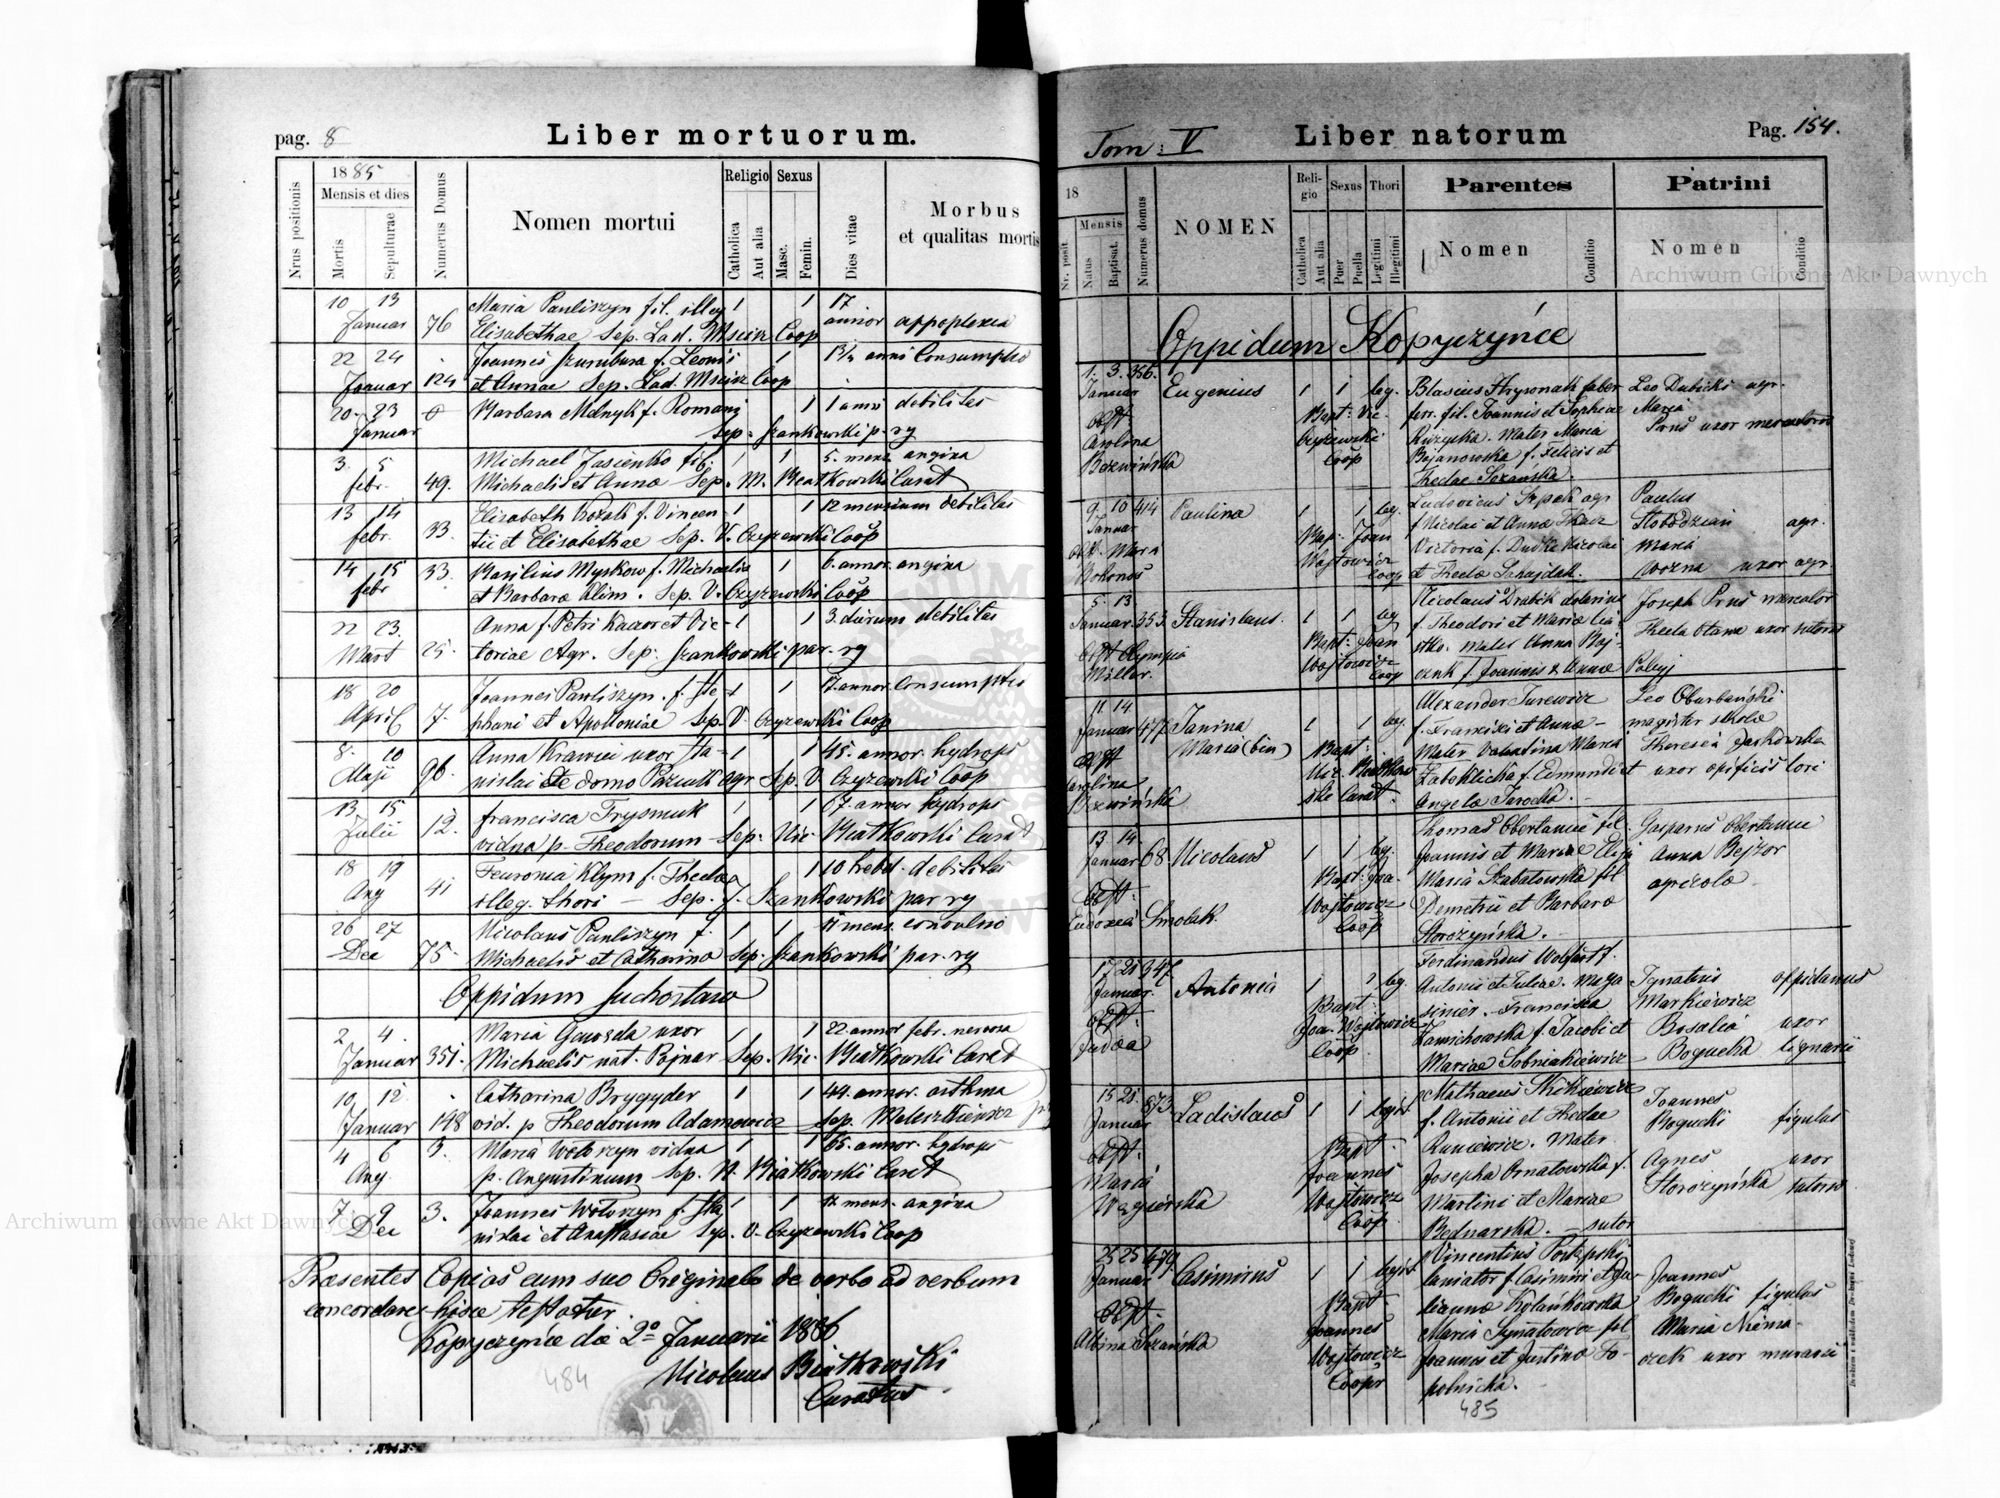 pag. 8
Liber mortuorum.
Nrus positionis
1885
Mensis et dies
Mortis
Sepulturae
Numerus Domus
Nomen mortui
Religio
Catholica
Aut alia
Sexus
Masc.
Femin.
Dies vitae
Morbus
et qualitas mortis
10 13 Maria Pauliszyn fil. illeg 1 1 17
Januar 76 Elisabethae Sep. Lad. Mscisz Coop annor appoplexia
22 24 Joannes f. Leonis 1 1½ anni Consumptio
Januar 124 et Annae Sep. Lad. Mscisz Coop
20 23 Barbara Melnyk f. Romani 1 1 anni debilitas
Januar Sep. Szankowski p. ry
3. 5 Michael Jasienko fil. 1 1 5. mens. angina
febr. 49. Michaelis et Anna Sep. N. Białkowski Curat
13 14 Elisabeth f. Vincen- 1 1 12 mensium debilitas
febr. 33. tii et Elisabethae Sep. V. Czyzewski Coop
14 15 33. Basilius Myskow f. Michaelis 1 6. annor. angina
febr et Barbara Klim. Sep. V. Czyzewski Coop
22 23. Anna f. Petri Kaczor et Vic- 1 1 3. dierum debilitas
Mart 25. toriae Agr. Sep. Szankowski par. ry
18 20 Joannes Pauliszyn. f. Ste- 1 1 17. annor. Consumptio
April 7. phani et Apolloniae Sep. V. Czyzewski Coop
8. 10 Anna Krawiec uxor Sta- 1 1 45. annor. hydrops
Maji 96. nislai de domo Paziuk agr Sep. V. Czyzewski Coop
13 15 Francisca Trysmuk 1 1 67. annor hydrops
Julii 12. vidua p. Theodorum Sep. Nic. Białkowski Curat
18 19 Feuronia Klym f. Thecla 1 10 hebd. debilitas
Aug 41 illeg. thori — Sep. J. Szankowski par ry
26 27 Nicolaus Pauliszyn f. 1 1 mens. convulsio
Dec 75. Michaelis et Catharina Sep. Szankowski par. ry
Oppidum Suchostaw
2 4. Maria uxor 1 1 22 annor febr. nervosa
Januar 351. Michaelis nat. Bojnar Sep. Nic. Białkowski Curat
10 12. Catharina Brygyder 1 1 44. annor. asthma
Januar 198 vid. p Theodorum Adamowicz Sep.
4 6 3. Maria Wołoszyn vidua 1 1 65. annor. hydrops
Aug. p. Augustinum Sep. N. Białkowski Curat
7 9 3. Joannes Wołoszyn f. Sta 1 1 mens. angina
Dec nislai et Anastasiae Sep. V. Czyzewski Coop
Praesentes Copias cum suo Originale de verbo ad verbum
concordare hisce testatur
Kopyczynce die 2º Januarii 1886
Nicolaus Białkowski
Curatus
484
Tom: V
Liber natorum
Pag. 154.
18
Nr. posit.
Mensis
Natus
Baptisat.
Numerus domus
NOMEN
Religio
Catholica
Aut alia
Sexus
Puer
Puella
Thori
Legitimi
Illegitimi
Parentes
Nomen
Conditio
Patrini
Nomen
Conditio
Oppidum Kopyczyńce
1. 3. 356.
Januar Eugenius 1 1 leg. Blasius Hrysonak faber Leo Dubicki agr.
obst. Bapt: Vic. ferr. fil. Joannis et Sophiae Maria
Carolina Czyzewski Ruzycka. Mater Maria Prus uxor mercatoris
Brzewińska Coop Bojanowska f. Felicis et
Theclae Sozańska.
9. 10 414 Paulina 1 1 leg. Ludovicus Szpak agr Paulus
Januar f Nicolai et Anna Tkacz Słobodzian agr.
obst. Maria Bap: Joan Victoria f. Dudka Nicolai Maria
Wojtowicz Coop et Thecla Wozna uxor agr.
5. 13 Nicolaus Drabik dolearius Joseph Prus mercator
Januar. 353. Stanislaus. 1 1 leg f. Theodori et Maria
Obst Olympia Bapt: Joan Mater Anna Boj- Thecla uxor sutoris
Miller. Wojtowicz Coop czuk f. Joannis & Annae
11. 14. Alexander Jurewicz Leo Oburbański
Januar 477. Janina 1 1 leg. f. Francisci et Anna — magister scholae
obst Maria (bin) Bapt: Mater Valentina Maria Theresia Jaskowska
Carolina Nic. Białkow- Zabeklicka f. Edmundi et uxor opificis lori
Brzewińska ski Curat. Angela Jarocka.
13 14. Thomas Obertaniec fil. Gasparus Obertaniec
Januar 68. Nicolaus 1 1 leg. Joannis et Mariae Anna Bejzor
obst. Bapt: Joa. Maria Szabatowska fil agricolae
Eudoxia Smolak. Wojtowicz Demetrii et Barbara
Coop Storozyńska.
17 25 347. Ferdinandus Wolfart f.
Januar. Antonia 1 1 leg. Antonii et Juliae. Maga Ignatius oppidanus
obst. Bapt: sinier. Francisca Markiewicz
Judea Joa. Wojtowicz f. Jacobi et Rosalia uxor
Coop. Mariae Sobniakiewicz Bogucka lignarii
15 25. 873. Ladislaus 1 1 legit. Mathaeus Joannes
Januar f. Antonii et Theclae Bogucki figulus
obst. Bapt. Runiewicz. Mater
Maria Joannes Josepha Ornatowska f. Agnes uxor
Węgierska Wojtowicz Martini et Mariae Storozyńska sutoris
Coop. Bednarska. — sutor
25 25 479. Vincentius
Januar Casimirus 1 1 legit. laniator f. Casimiri et Ju- Joannes
obst. Bapt. lianna Kylańkowska Bogucki figulus
Albina Sozańska Joannes Maria Ignatowicz fil Maria Niema-
Wojtowicz Joannis et Justina To- czek uxor murarii
Coopr polnicka.
485
Archiwum Główne Akt Dawnych
Archiwum Główne Akt Dawnych